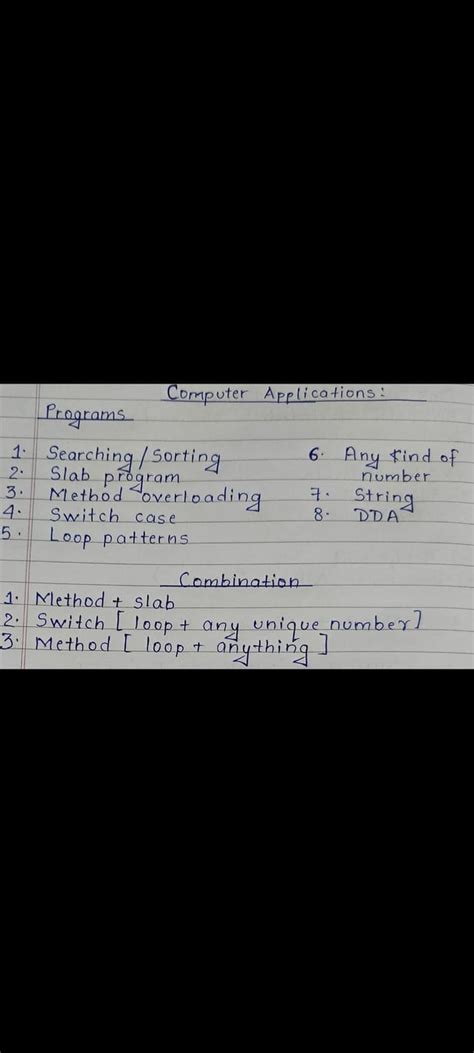 Computer Applications:
Programs
1. Searching/Sorting
2. Slab program
3. Method overloading
4. Switch case
5. Loop patterns
6. Any kind of
number
7. String
8. DDA
Combination
1. Method + slab
2. Switch [ loop + any unique number]
3. Method [ loop + anything ]